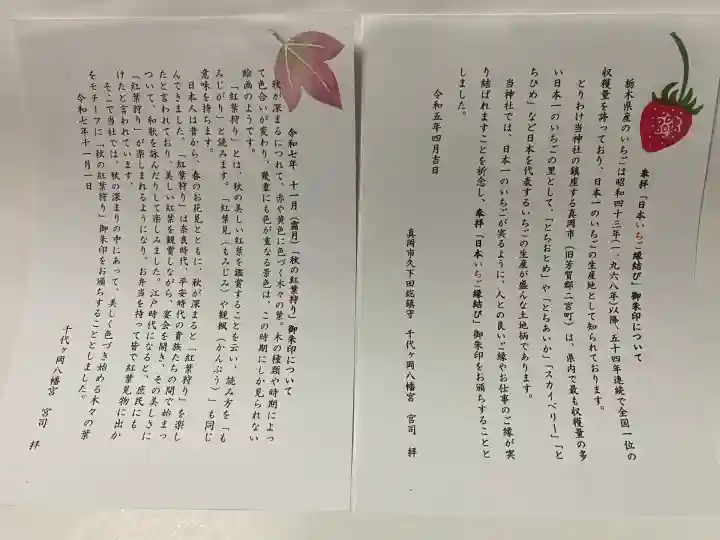 奉拝「日本いちご縁結び」御朱印について
栃木県産のいちごは昭和四十三年(一、九六八年)以降、五十四年連続で全国一位の
収穫量を誇っており、日本一のいちごの生産地として知られております。
とりわけ当神社の鎮座する真岡市(旧芳賀郡二宮町)は、県内で最も収穫量の多
い日本一のいちごの里として、「とちおとめ」や「とちあいか」「スカイベリー」「と
ちひめ」など日本を代表するいちごの生産が盛んな土地柄であります。
当神社では、日本一のいちごが実るように、人との良いご縁やお仕事のご縁が実
り結ばれますことを祈念し、奉拝「日本いちご縁結び」御朱印をお頒ちすることと
しました。
令和五年四月吉日
真岡市久下田総鎮守 千代ヶ岡八幡宮 宮司 拝
令和七年 十一月(霜月)「秋の紅葉狩り」御朱印について
秋が深まるにつれて、赤や黄色に色づく木々の葉。木の種類や時期によっ
て色合いが変わり、幾重にも色が重なる景色は、この時期にしか見られない
絵画のようです。
「紅葉狩り」とは、秋の美しい紅葉を鑑賞することを云い、読み方を「も
みじがり」と読みます。「紅葉見(もみじみ)や観楓(かんぷう)」も同じ
意味を持ちます。
日本人は昔から、春のお花見とともに、秋が深まると「紅葉狩り」を楽し
んできました。「紅葉狩り」は奈良時代、平安時代の貴族たちの間で始まっ
たと言われており、美しい紅葉を観賞しながら、宴会を開き、その美しさに
ついて、和歌を詠んだりして楽しみました。江戸時代になると、庶民にも
「紅葉狩り」が楽しまれるようになり、お弁当を持って皆で紅葉見物に出か
けたと言われています。
そこで当社では、秋の深まりの中にあって、美しく色づき始める木々の葉
をモチーフに「秋の紅葉狩り」御朱印をお頒ちすることとしました。
令和七年十一月一日
千代ヶ岡八幡宮 宮司 拝